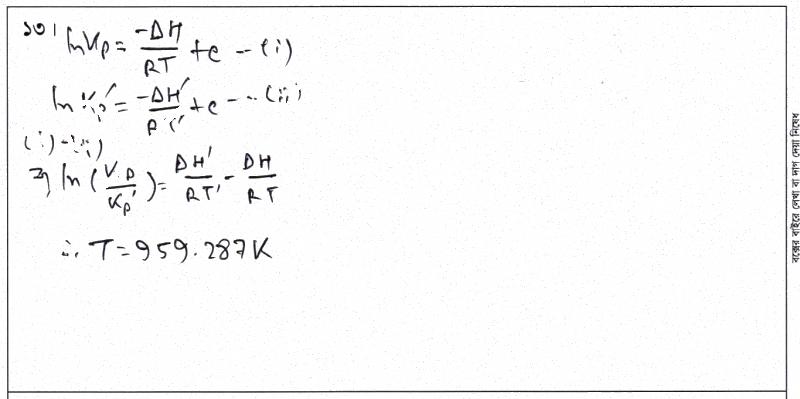 ১৩। lnKp = -ΔH/RT + c -- (i)
ln Kp' = -ΔH'/RT' + c --- (ii)
(i) - (ii)
⇒ ln (Kp/Kp') = ΔH'/RT' - ΔH/RT
∴ T = 959.287K
বক্সের বাইরে লেখা বা দাগ দেয়া নিষেধ